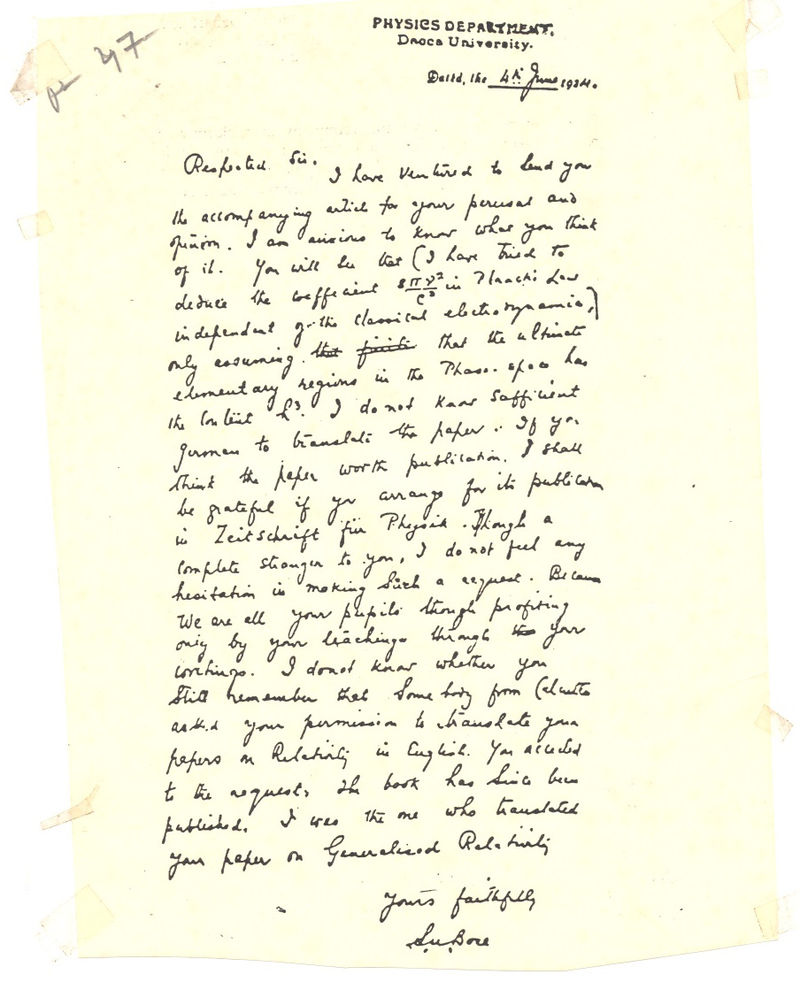 PHYSICS DEPARTMENT.
Dacca University.
Dated, the 4th June 1924.
Respected Sir,
I have ventured to send you
the accompanying article for your perusal and
opinion. I am anxious to know what you think
of it. You will see that (I have tried to
deduce the coefficient 8πν²/c³ in Planck's Law
independent of the classical electrodynamics,)
only assuming that finite that the ultimate
elementary regions in the Phase-space has
the content h³. I do not know sufficient
German to translate the paper. If you
think the paper worth publication, I shall
be grateful if you arrange for its publication
in Zeitschrift für Physik. Though a
complete stranger to you, I do not feel any
hesitation in making such a request. Because
We are all your pupils though profiting
only by your teachings through the your
writings. I donot know whether you
Still remember that Somebody from Calcutta
asked your permission to translate your
papers on Relativity in English. You acceded
to the request. The book has since been
published. I was the one who translated
your paper on Generalised Relativity
Yours faithfully
S.N. Bose